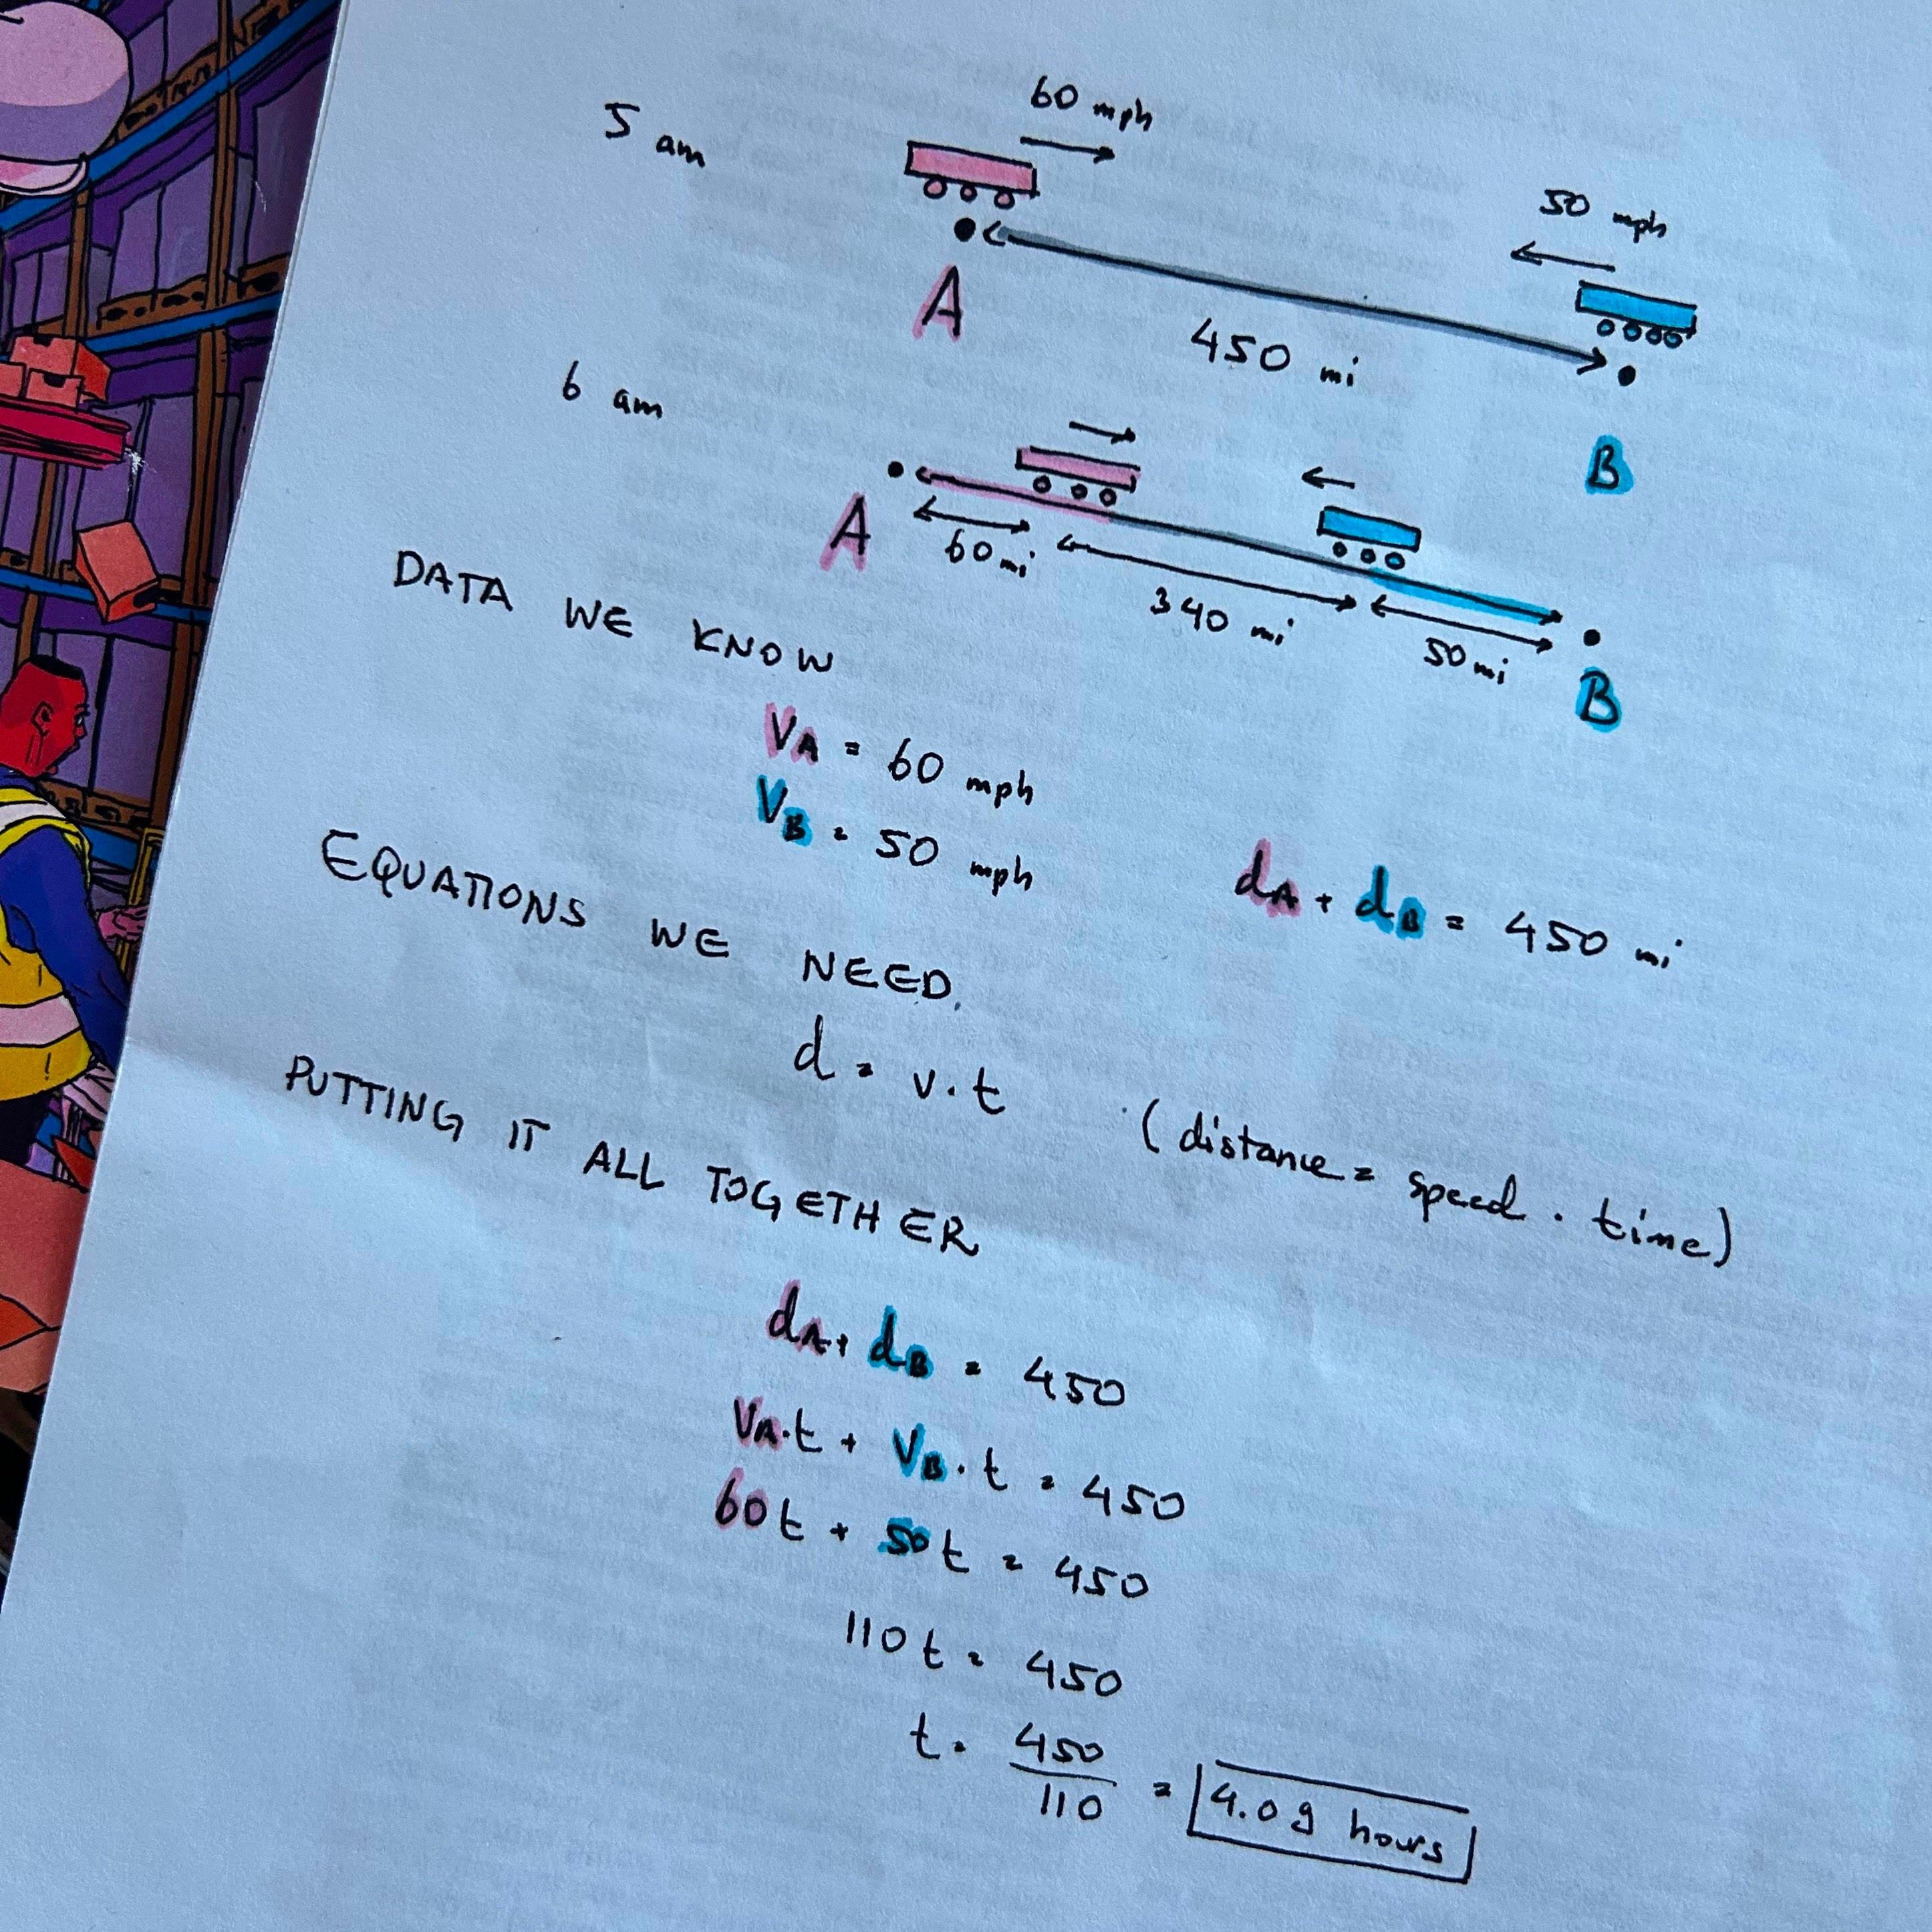 5 am
60 mph
50 mph
A
450 mi
B
6 am
A
60 mi
340 mi
50 mi
B
DATA WE KNOW
VA = 60 mph
VB = 50 mph
dA + dB = 450 mi
EQUATIONS WE NEED
d = v·t (distance = speed · time)
PUTTING IT ALL TOGETHER
dA + dB = 450
VA·t + VB·t = 450
60t + 50t = 450
110t = 450
t = 450/110 = 4.09 hours